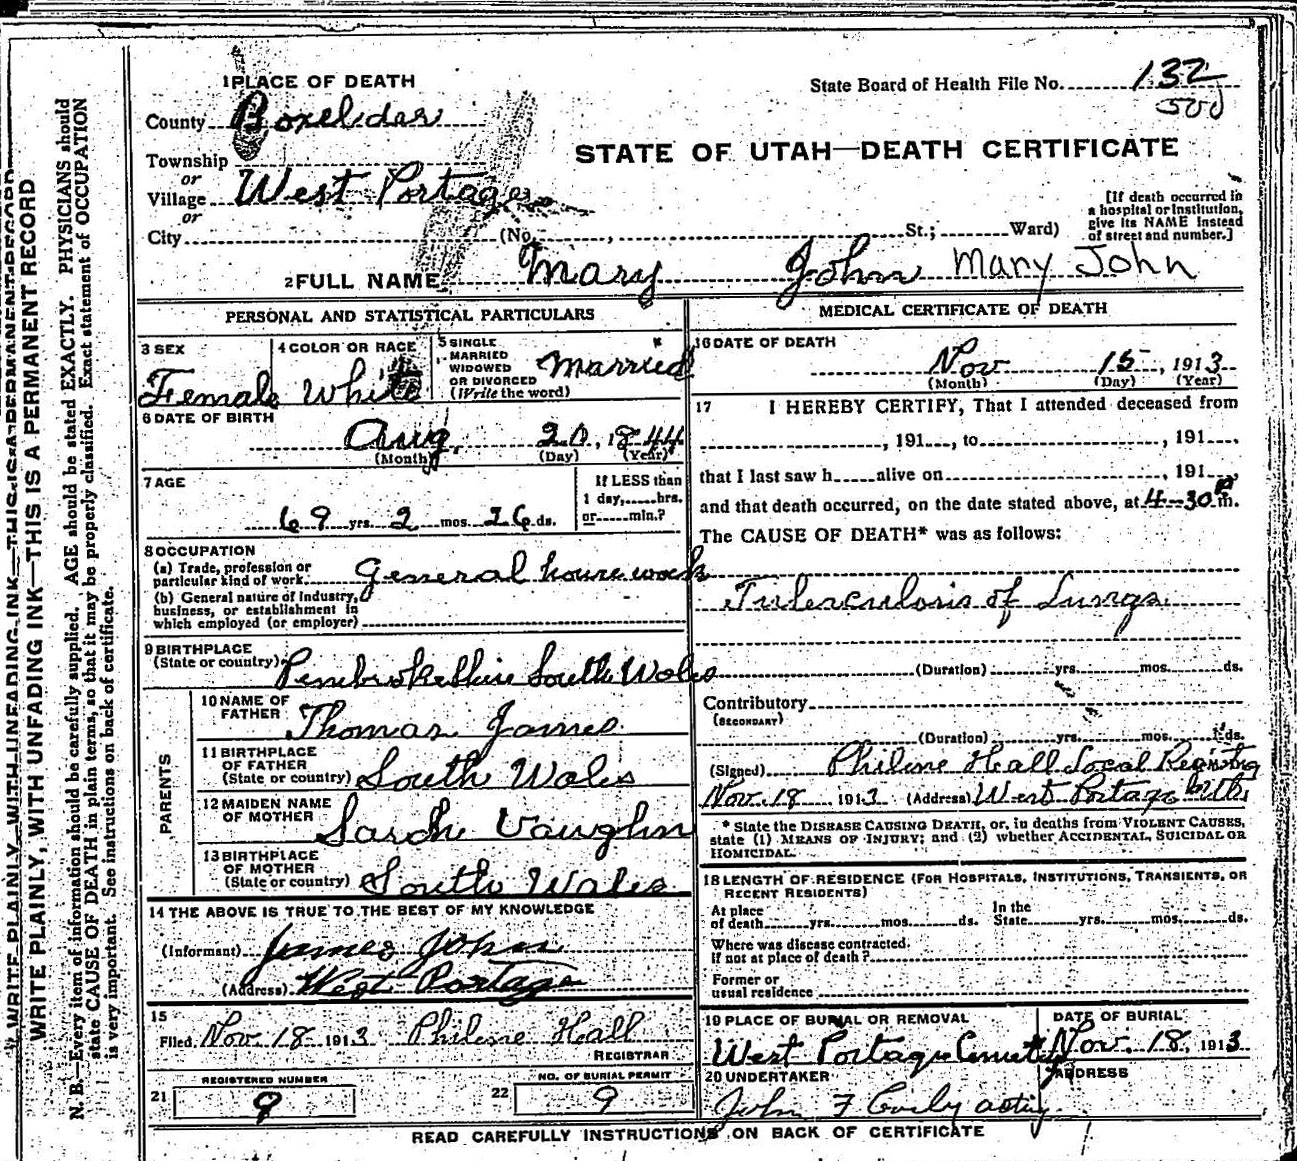 WRITE PLAINLY, WITH UNFADING INK—THIS IS A PERMANENT RECORD
N. B.—Every item of information should be carefully supplied. AGE should be stated EXACTLY. PHYSICIANS should
state CAUSE OF DEATH in plain terms, so that it may be properly classified. Exact statement of OCCUPATION
is very important. See instructions on back of certificate.
1 PLACE OF DEATH
State Board of Health File No. 132
500
County Boxelder
STATE OF UTAH—DEATH CERTIFICATE
Township
or
Village West Portage
or
City (No. , St.; Ward)
[If death occurred in
a hospital or institution,
give its NAME instead
of street and number.]
2 FULL NAME Mary John Mary John
PERSONAL AND STATISTICAL PARTICULARS
3 SEX
Female
4 COLOR OR RACE
White
5 SINGLE
MARRIED
WIDOWED
OR DIVORCED
(Write the word)
Married
6 DATE OF BIRTH
Aug. 20, 1844
(Month) (Day) (Year)
7 AGE
69 yrs. 2 mos. 26 ds.
If LESS than
1 day, hrs.
or min.?
8 OCCUPATION
(a) Trade, profession or
particular kind of work General house work
(b) General nature of industry,
business, or establishment in
which employed (or employer)
9 BIRTHPLACE
(State or country) Pembrokeshire South Wales
PARENTS
10 NAME OF
FATHER Thomas James
11 BIRTHPLACE
OF FATHER
(State or country) South Wales
12 MAIDEN NAME
OF MOTHER Sarah Vaughn
13 BIRTHPLACE
OF MOTHER
(State or country) South Wales
14 THE ABOVE IS TRUE TO THE BEST OF MY KNOWLEDGE
(Informant) James John
(Address) West Portage
15
Filed Nov. 18 1913 Philene Hall
REGISTRAR
21 REGISTERED NUMBER
9
22 NO. OF BURIAL PERMIT
9
MEDICAL CERTIFICATE OF DEATH
16 DATE OF DEATH
Nov 15, 1913
(Month) (Day) (Year)
17 I HEREBY CERTIFY, That I attended deceased from
, 191 , to , 191 ,
that I last saw h alive on , 191 ,
and that death occurred, on the date stated above, at 4-30 P m.
The CAUSE OF DEATH* was as follows:
Tuberculosis of Lungs
(Duration) yrs. mos. ds.
Contributory
(SECONDARY)
(Duration) yrs. mos. ds.
(Signed) Philene Hall Local Registrar
Nov. 18 1913 (Address) West Portage Utah
* State the DISEASE CAUSING DEATH, or, in deaths from VIOLENT CAUSES,
state (1) MEANS OF INJURY; and (2) whether ACCIDENTAL, SUICIDAL OR
HOMICIDAL.
18 LENGTH OF RESIDENCE (FOR HOSPITALS, INSTITUTIONS, TRANSIENTS, OR
RECENT RESIDENTS)
At place
of death yrs. mos. ds.
In the
State yrs. mos. ds.
Where was disease contracted,
if not at place of death?
Former or
usual residence
19 PLACE OF BURIAL OR REMOVAL
West Portage Cemetery
DATE OF BURIAL
Nov. 18, 1913
20 UNDERTAKER
John F acting
ADDRESS
READ CAREFULLY INSTRUCTIONS ON BACK OF CERTIFICATE